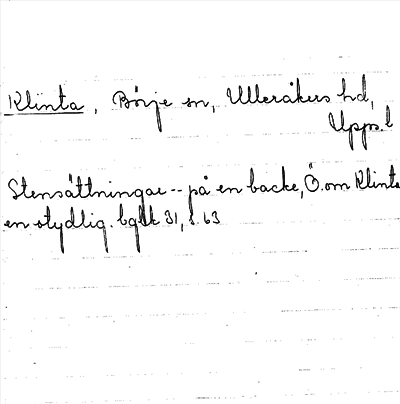 Klinta, Börje sn, Ulleråkers hd,
Upps.l
Stensättningar -- på en backe, Ö. om Klinta
en otydlig. bglk 31, s. 63